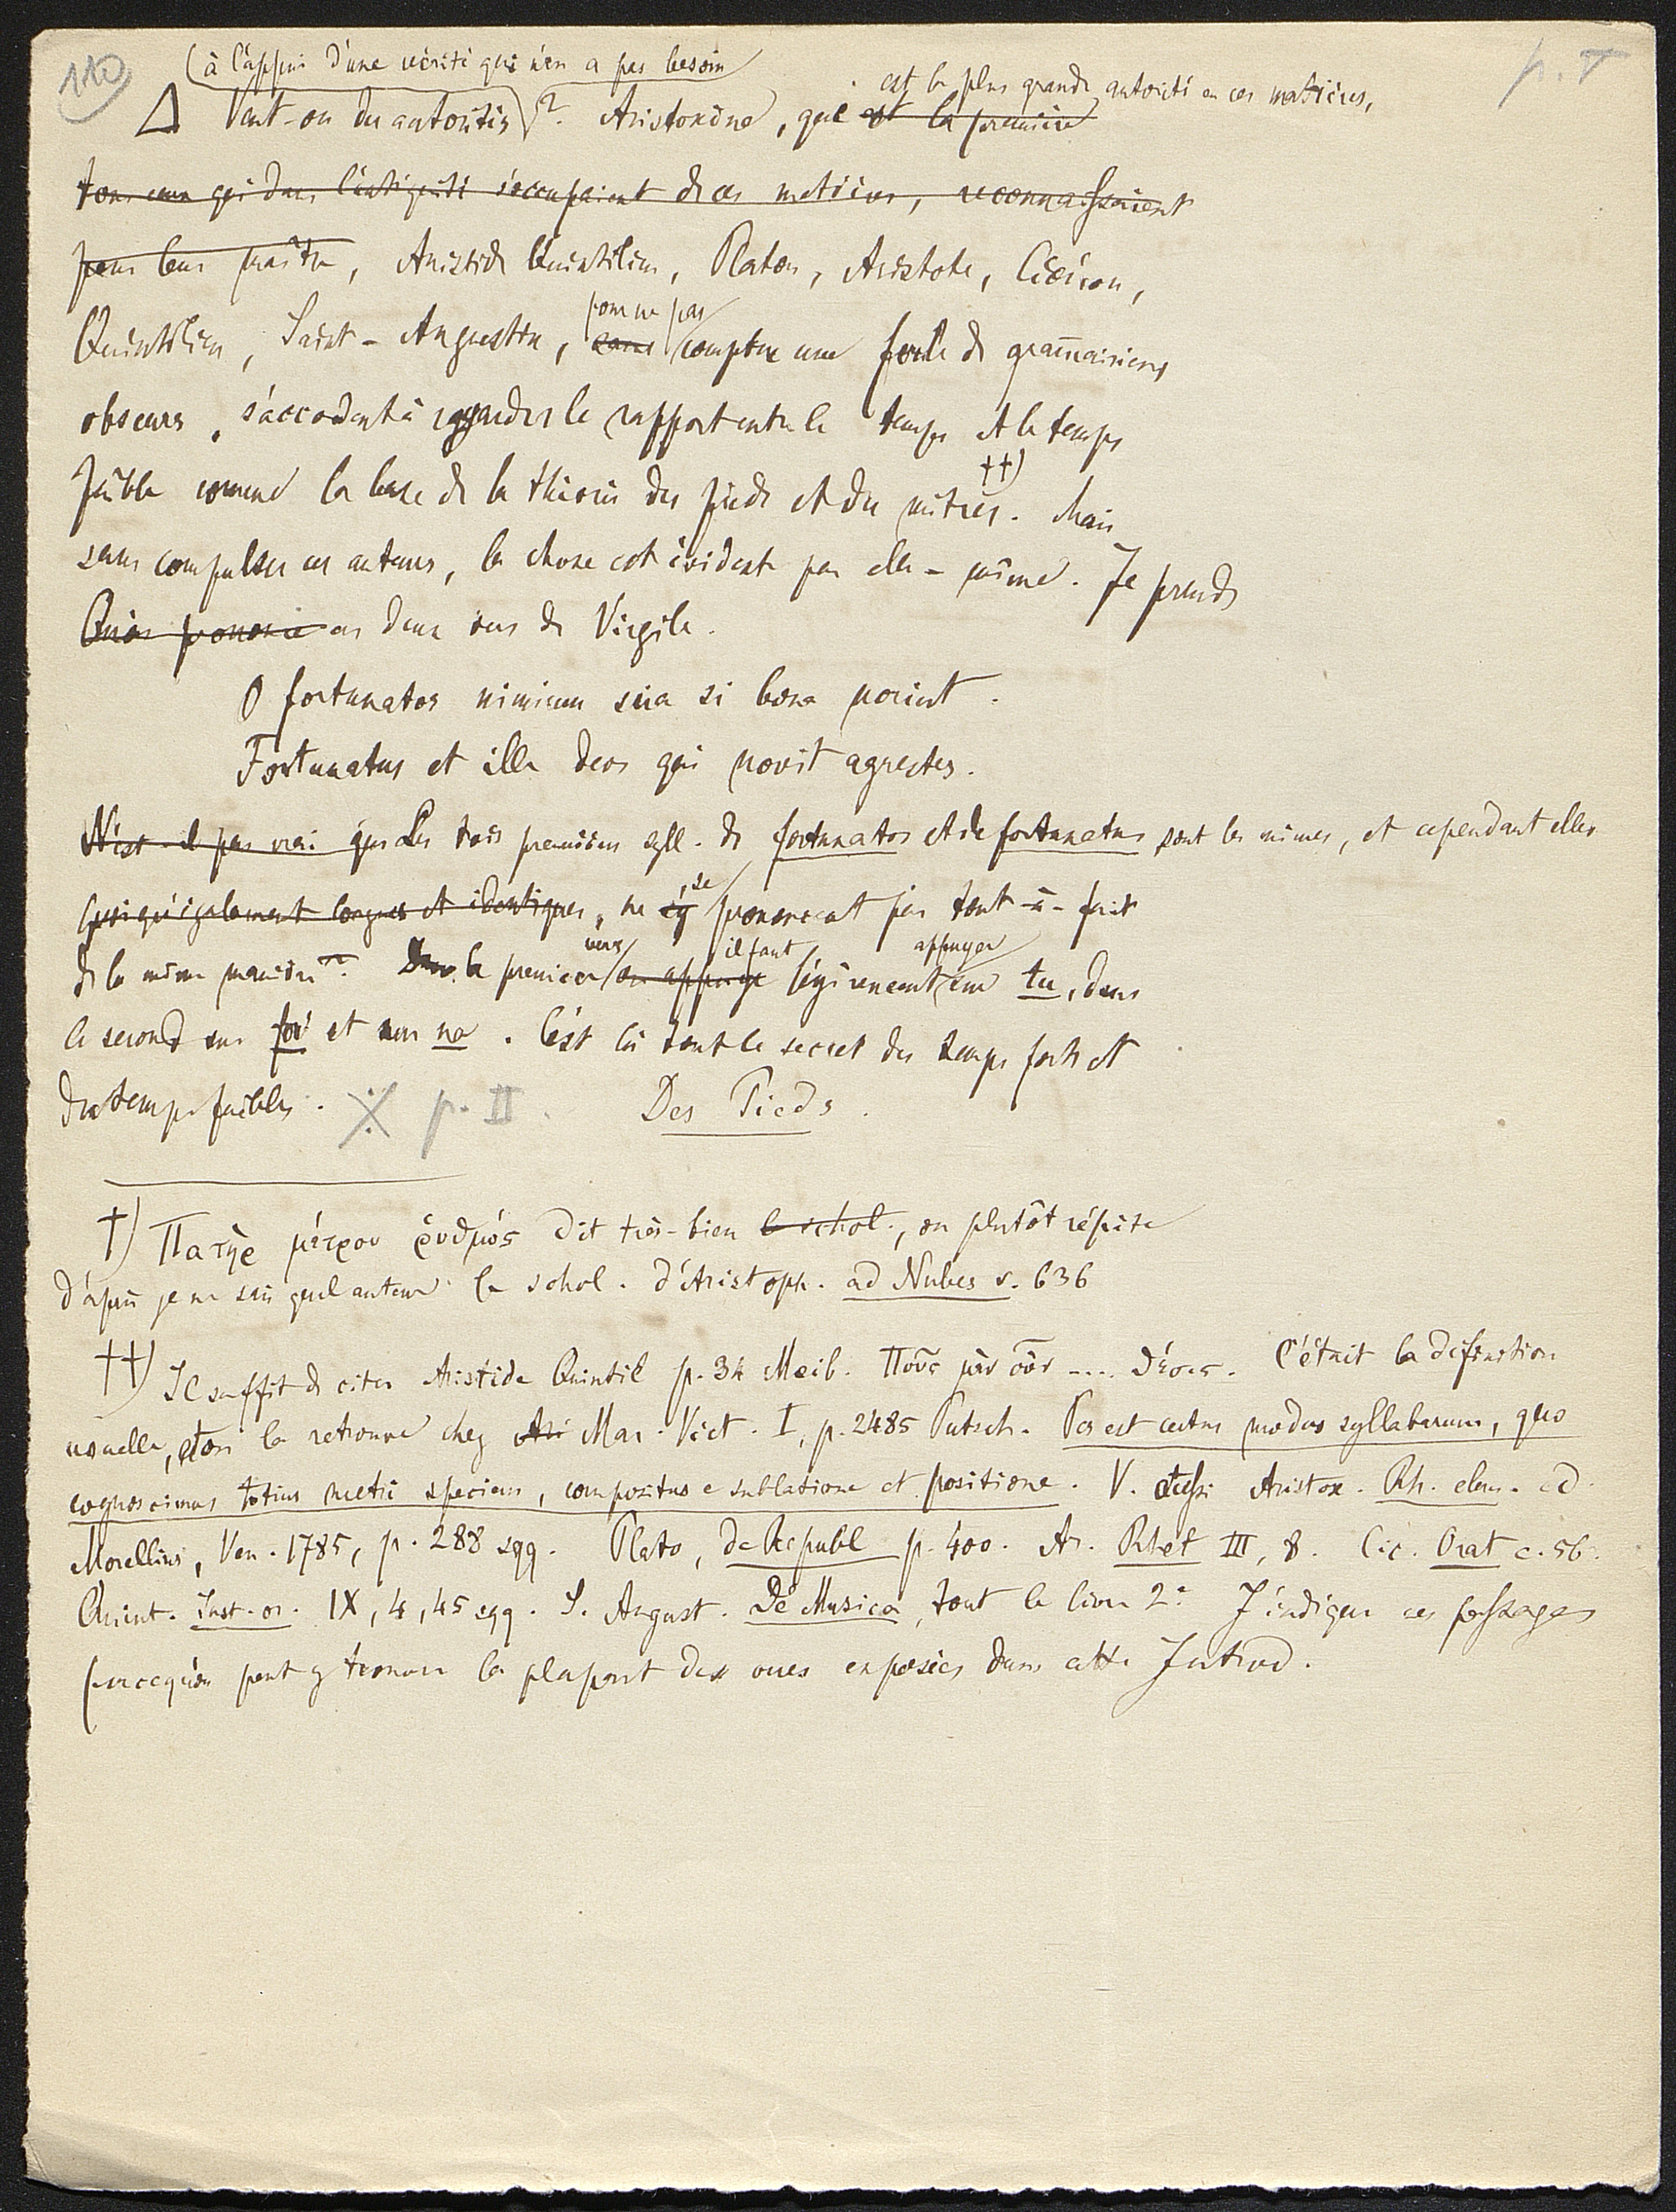 110
p. V
(à l'appui d'une vérité qui n'en a pas besoin
est la plus grande autorité en ces matières,
Δ Veut-on des autorités)? Aristoxène, que est la première
tous ceux qui dans l'antiquité s'occupaient de ces matières, reconnaissaient
pour leur maître, Aristide Quintilien, Platon, Aristote, Cicéron,
pour ne pas
Quintilien, Saint-Augustin, sans compter une foule de grammairiens
obscurs, s'accordent à regarder le rapport entre le temps et le temps
††)
faible comme la base de la théorie des pieds et des mètres. Mais
sans compulser ces auteurs, la chose est évidente par elle-même. Je prends
ces deux vers de Virgile.
O fortunatos nimium sua si bona norint.
Fortunatus et ille deos qui novit agrestes.
N'est-il pas vrai que Les trois premières syll. de fortunatos et de fortunatus sont les mêmes, et cependant elles
se
quoiqu'également longues et identiques, ne prononcent pas tout-à-fait
vers il faut appuyer
de la même manière? Dans le premier on appuye légèrement sur tu, dans
le second sur for et sur na. C'est là tout le secret des temps forts et
des temps faibles. p. II. Des Pieds.
†) Πατὴρ μέτρου ῥυθμός dit très-bien le schol., ou plutôt répète
d'après je ne sais quel auteur le schol. d'Aristoph. ad Nubes v. 636
††) Il suffit de citer Aristide Quintil p. 34 Meib. Ποὺς μὲν οὖν .... θέσις. C'était la définition
usuelle, et on la retrouve chez Ari Mar. Vict. I, p. 2485 Putsch. Pes est certus modus syllabarum, quo
cognoscimus totius metri speciem, compositus e sublatione et positione. V. aussi Aristox. Rh. elem. ed.
Morellius, Ven. 1785, p. 288 sqq. Plato, de Republ p. 400. Ar. Rhet III, 8. Cic. Orat c. 56.
Quint. Inst. or. IX, 4, 45 sqq. S. August. De Musica, tout le livre 2e. J'indique ces passages
parcequ'on peut y trouver la plupart des vues exposées dans cette Introd.